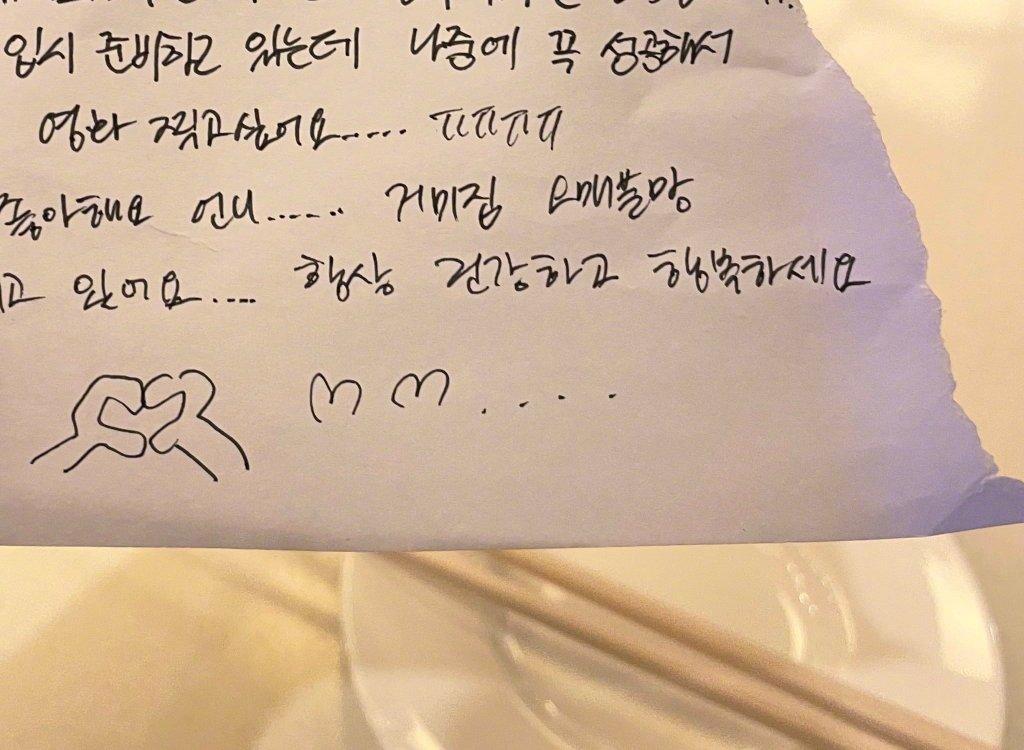 입시 준비하고 있는데 나중에 꼭 성공해서
영화 찍고싶어요..... ㅠㅠㅠㅠ
좋아해요 언니...... 거미집 오매불망
고 있어요.... 항상 건강하고 행복하세요